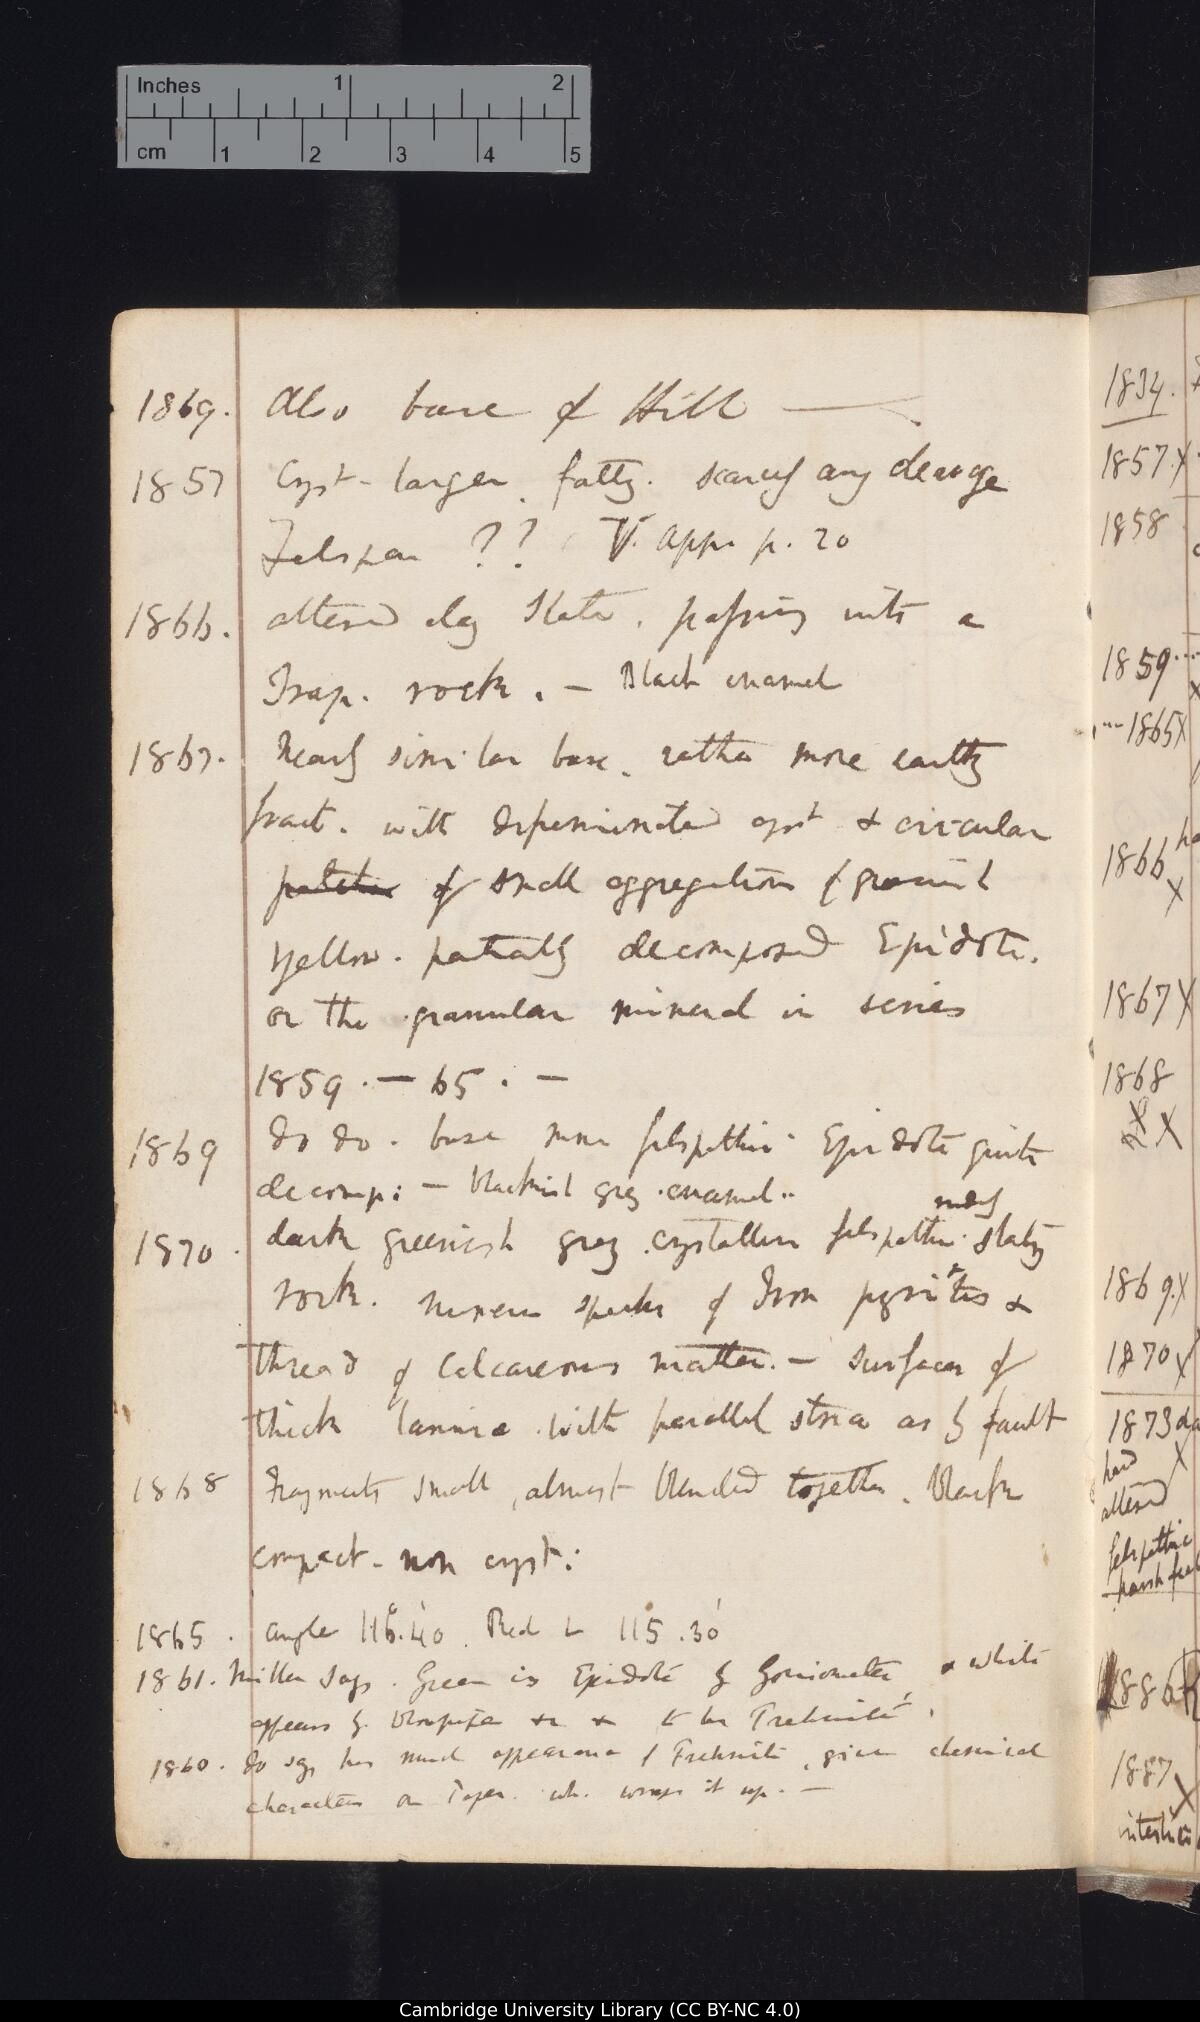 Inches 1 2
cm 1 2 3 4 5
1869. Also base of Hill —
1857 Cryst- larger, fatty. scarcely any cleavage
Felspar ?? V. App. p. 20
1866. altered clay Slate, passing into a
Trap. rock. — Black enamel
1867. Nearly similar base, rather more earthy
fract. with disseminated cryst & circular
patches of small aggregations of greenish
yellow. partially decomposed Epidote.
or the granular mineral in series
1859. — 65. —
1869 do do. base more felspathic. Epidote quite
decomp: — blackish grey enamel..
nearly
1870. dark greenish grey crystalline felspathic slaty
rock. numerous specks of Iron pyrites &
thread of Calcareous matter. — surfaces of
thick lamina with parallel striae as by fault
1868 Fragments small, almost blended together. black
compact- non cryst:
1865. angle 116°.40'. Red 115.30'
1861. Miller says. Green is Epidote by Goniometer, & white
appears by blowpipe &c & to be Prehnite.
1860. do says has much appearance of Prehnite, given chemical
characters on Paper. wh. wraps it up. —
1834.
1857.X
1858
1859...
...1865X
1866
X
1867X
1868
X
1869.X
1870X
1873
hard X
altered
felspathic
harsh
1886
1887
X
Cambridge University Library (CC BY-NC 4.0)